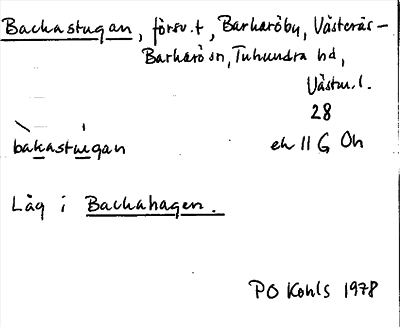 Backastugan, försv.t, Barkaröby, Västerås-
Barkarö sn, Tuhundra hd,
Västm.l.
28
bakastugan ek 11 G Oh
Låg i Backahagen.
PO Kohls 1978